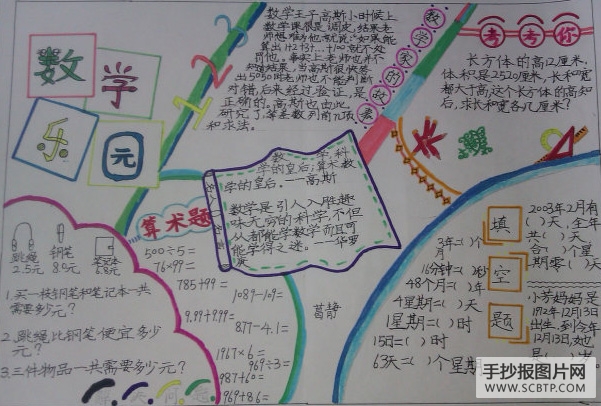 数学
乐园
1 2 2 1 2 3
数学王子高斯小时候上
数学课很是调皮,结果老
师想难为他就说:"如果能
算出1+2+3+…+100就不处
罚他。事实上老师也并不
知道结果,当高斯很快答
出5050时老师也不能判断
对错,后来经过验证,是
正确的。高斯也由此
研究了等差数列前几项
和求法。
数学家的故事
考考你
长方体的高12厘米,
体积是2520厘米,长和宽
都大于高这个长方体的高知
后,求长和宽各几厘米?
数学,科
学的皇后;算术数
学的皇后。——高斯
数学是引人入胜趣
味无穷的科学,不但
从都能学数学而且可
能学得之迷。——华罗
庚
算术题
500÷5=
76×99=
785+99=
1089-109=
9.99+9.99=
877-4.1=
1967×6=
969÷3=
987+60=
969+86=
葛静
跳绳 钢笔 笔记本
2.5元 8.0元 6.8元
1.买一枝钢笔和笔记本一共
需要多少元?
2.跳绳比钢笔便宜多少
元?
3.三件物品一共需要多少元?
填空题
3年=( )个
月
16分钟=( )秒
48个月=( )年
4星期=( )天
1星期=( )时
15日=( )时
63天=( )个星期
2003年2月有
( )天,全年
共( )天
合( )个星
期零( )天
小芳妈妈是
1972年12月13日
出生,到今年
12月13日,她
手抄报图片网
WWW.SCBTP.COM